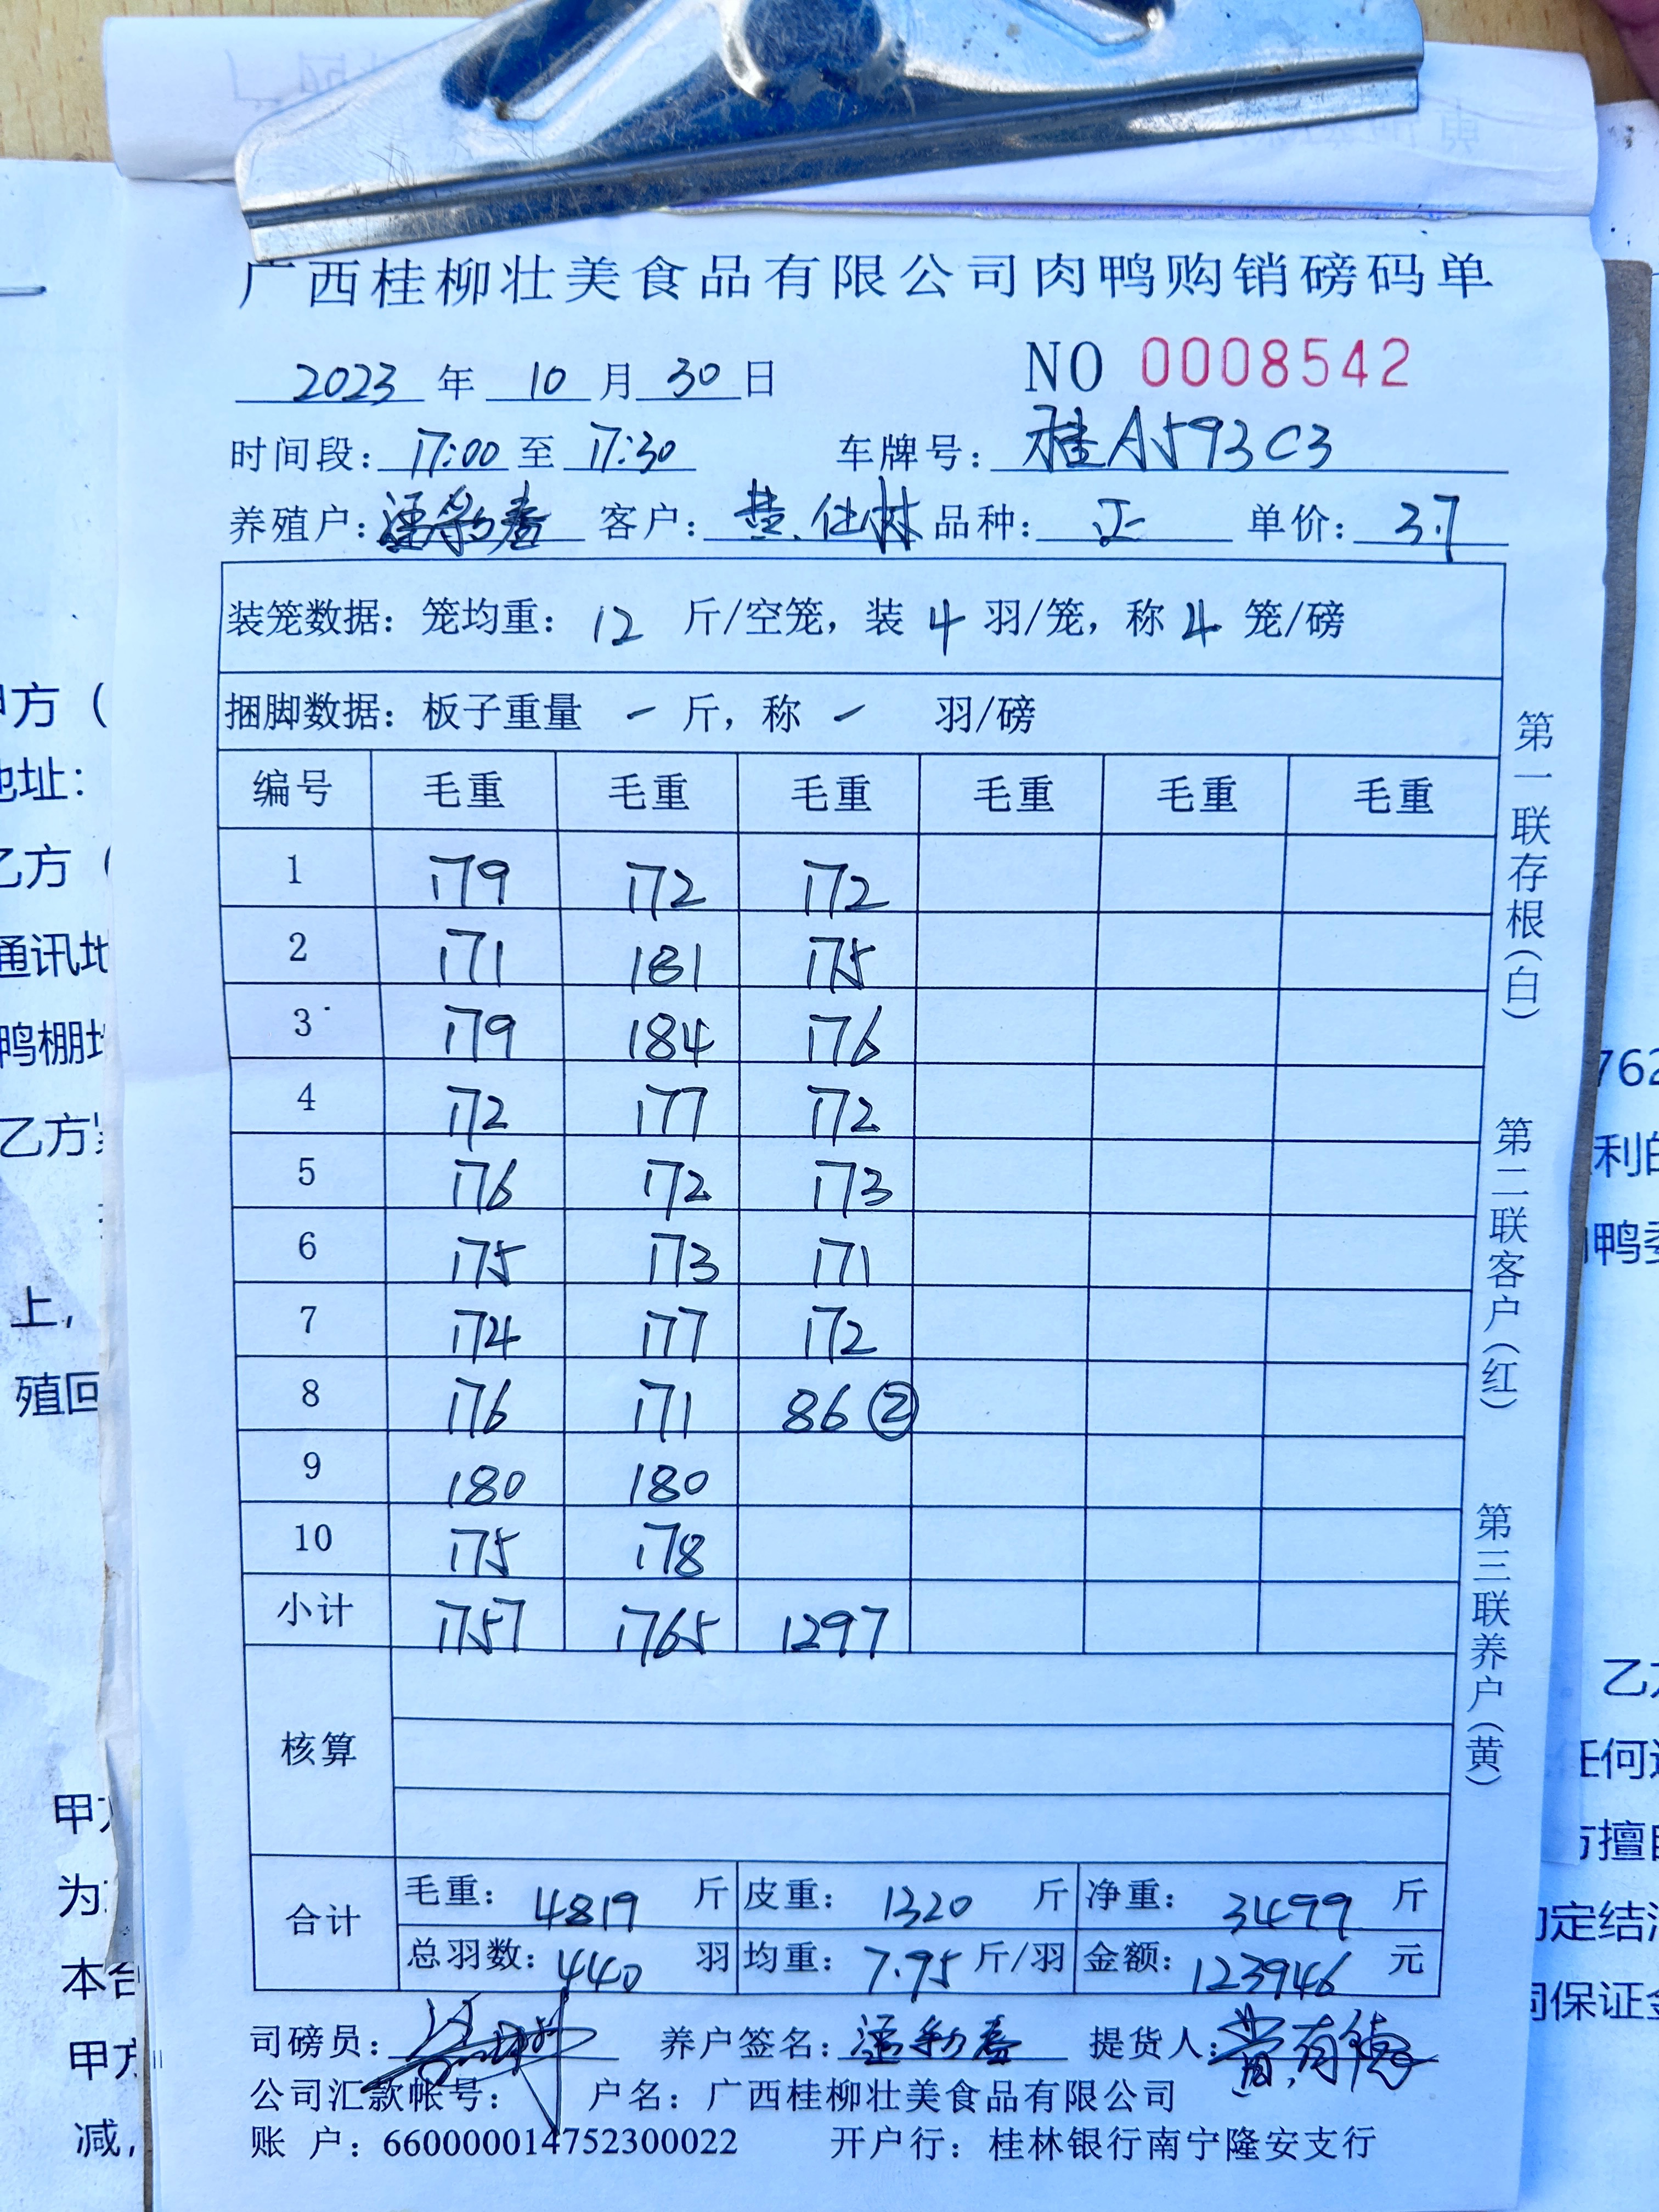 广西桂柳壮美食品有限公司肉鸭购销磅码单
2023 年 10 月 30 日 NO 0008542
时间段: 17:00 至 17:30 车牌号: 桂A593C3
养殖户: 客户: 黄仕林 品种: 正 单价: 3.7
装笼数据: 笼均重: 12 斤/空笼, 装 4 羽/笼, 称 4 笼/磅
捆脚数据: 板子重量 - 斤, 称 - 羽/磅
编号 毛重 毛重 毛重 毛重 毛重 毛重
1 179 172 172
2 171 181 175
3 179 184 176
4 172 177 172
5 176 172 173
6 175 173 171
7 174 177 172
8 176 171 86 ②
9 180 180
10 175 178
小计 1757 1765 1297
核算
合计 毛重: 4819 斤 皮重: 1320 斤 净重: 3499 斤
总羽数: 440 羽 均重: 7.95 斤/羽 金额: 123946 元
司磅员: 养户签名: 提货人: 黄有德
公司汇款帐号: 户名: 广西桂柳壮美食品有限公司
账 户: 660000014752300022 开户行: 桂林银行南宁隆安支行
第一联存根(白)
第二联客户(红)
第三联养户(黄)
甲方（
地址:
乙方（
通讯地
鸭棚地
乙方
上,
殖回
甲方
为
本合
甲方
减,
762
利的
鸭委
乙方
任何
方擅自
约定结
保证金